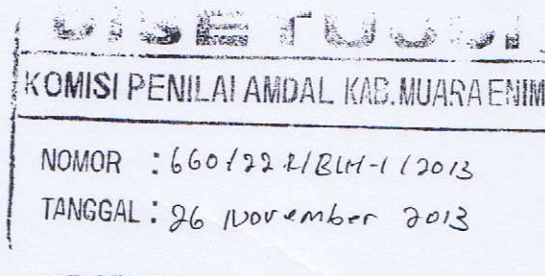 DISETUJUI
KOMISI PENILAI AMDAL KAB. MUARA ENIM
NOMOR : 660/22 /BLH-1/2013
TANGGAL : 26 November 2013